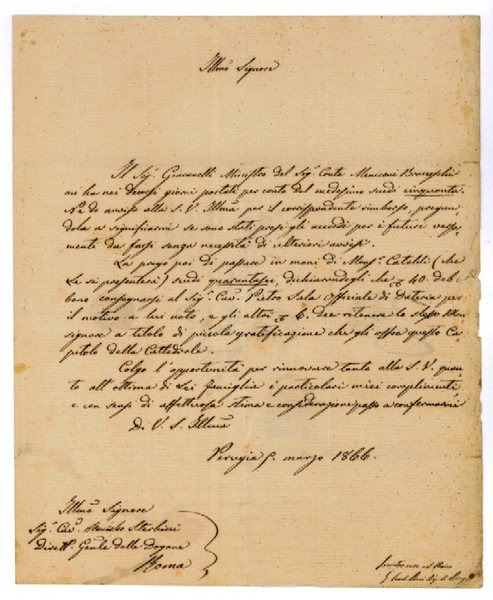 Illmo Signore
Il Sigr Giacanelli Ministro del Sigr Conte Meniconi Bracceschi
mi ha nei decorsi giorni portati per conto del medesimo scudi cinquanta.
Ne do avviso alla S. V. Illma per il corrispondente rimborso, pregan-
dola a significarmi se sono stati presi gli accordi per i futuri versa-
menti da farsi senza necessità di ulteriori avvisi.
La prego poi di passare in mani di Monsr Cataldi (che
Le si presenterà) scudi quarantasei, dichiarandogli che 40 deb-
bono consegnarsi al Sigr Cavr Pietro Sala Officiale di Dateria per
il motivo a lui noto, e gli altri 6. dee ritenere lo stesso Mon-
signore a titolo di piccola gratificazione che gli offre questo Ca-
pitolo della Cattedrale.
Colgo l'opportunità per rinnovare tanto alla S. V. quan-
to all'ottima di Lei famiglia i particolari miei complimenti,
e con sensi di affettuosa stima e considerazione passo a confermarmi
Di V. S. Illma
Perugia 5. marzo 1866.
Illmo Signore
Sigr Cavr Sterbini
Dirett. Gente delle Dogane
Roma